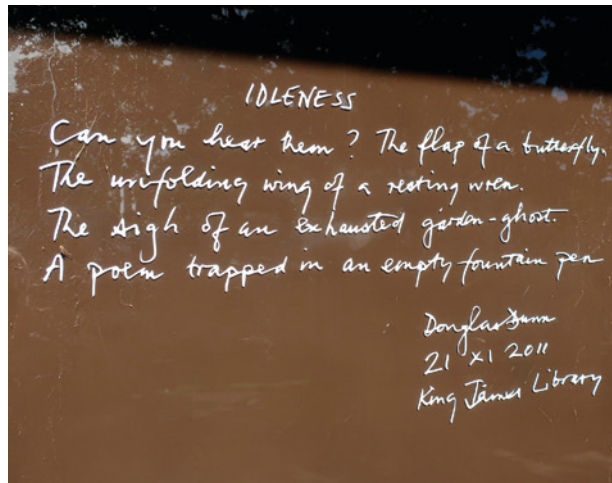 IDLENESS
Can you hear them? The flap of a butterfly.
The unfolding wing of a resting wren.
The sigh of an exhausted garden-ghost.
A poem trapped in an empty fountain pen
Douglas Dunn
21 XI 2011
King James Library